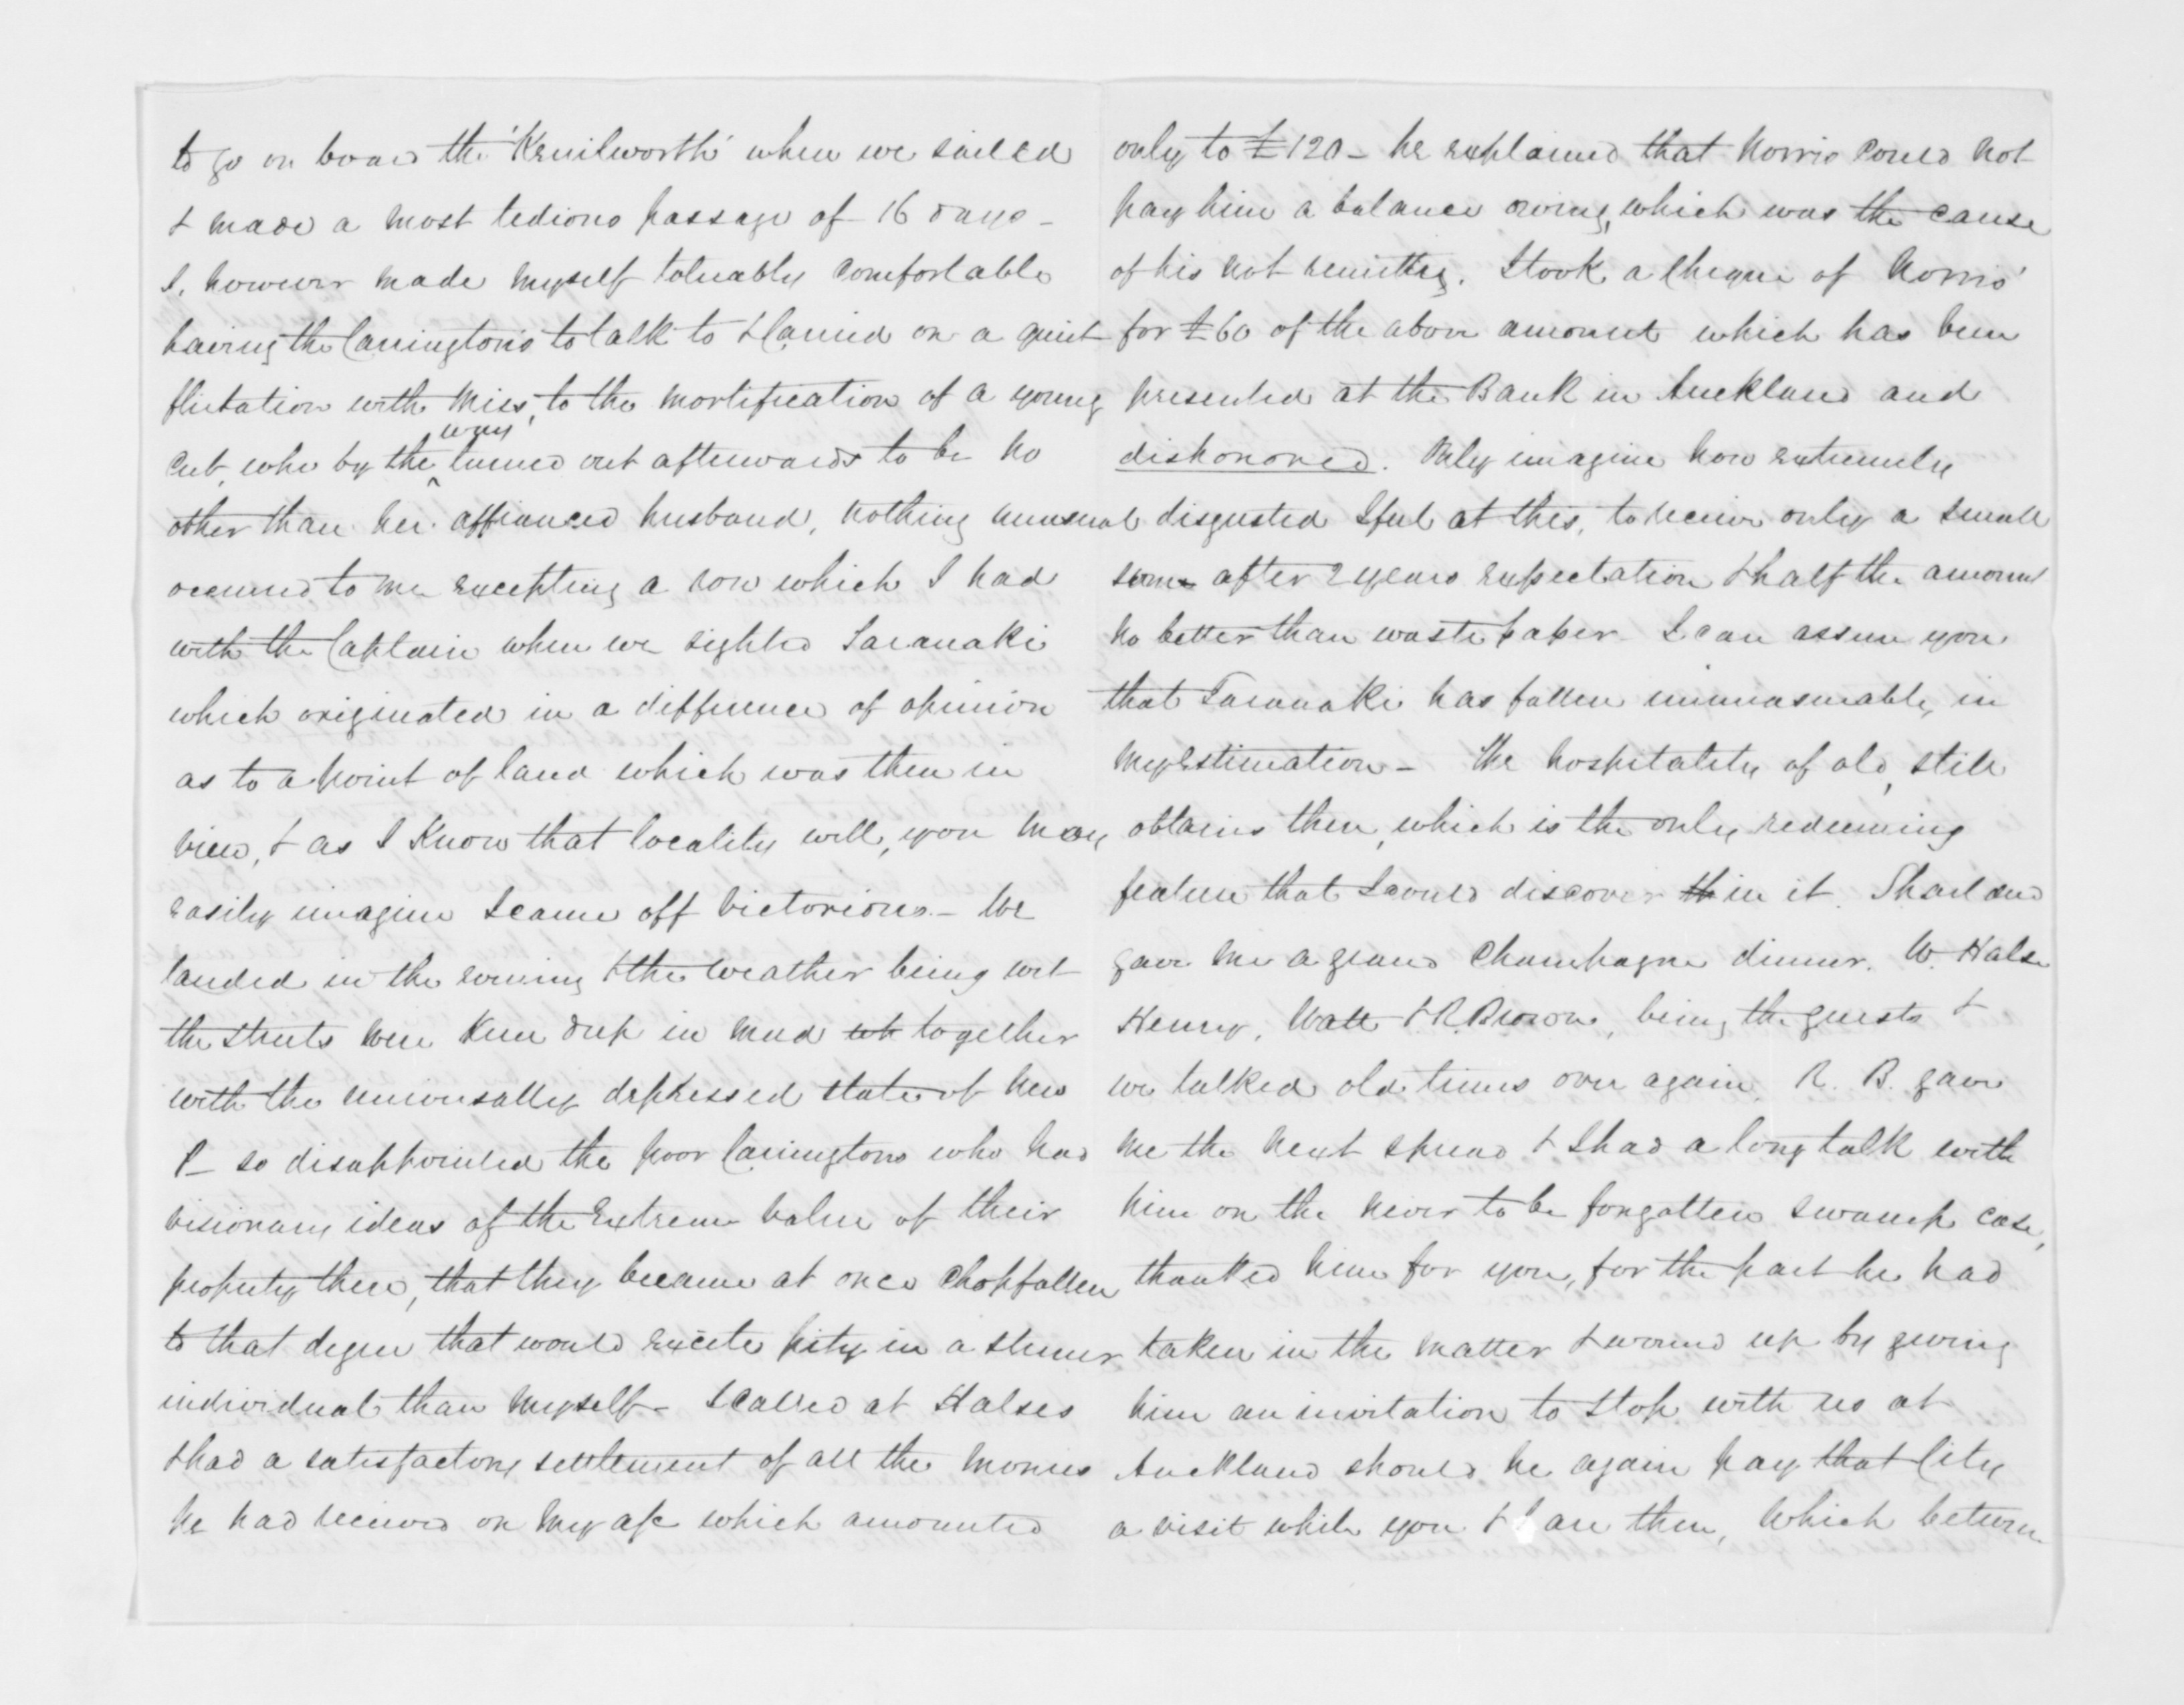 to go on board the 'Kenilworth' when we sailed
& made a most tedious passage of 16 days -
I, however made myself tolerably comfortable
having the Carringtons to talk to & carried on a quiet
flirtation with Miss, to the mortification of a young
cub, who by the way turned out afterwards to be no
other than her affianced husband, nothing unusual
occurred to me excepting a row which I had
with the Captain when we sighted Taranaki
which originated in a difference of opinion
as to a point of land which was then in
view, & as I know that locality well, you may
easily imagine I came off victorious - We
landed in the evening & the weather being wet
the streets were knee deep in mud wh together
with the universally depressed state of New
P - so disappointed the poor Carringtons who had
visionary ideas of the extreme value of their
property there, that they became at once chopfallen
to that degree that would excite pity in a sterner
individual than myself - I called at Halses
& had a satisfactory settlement of all the monies
he had received on my a/c which amounted
only to £120 - he explained that Norris could not
pay him a balance owing, which was the cause
of his not remitting. I took a cheque of Norris'
for £60 of the above amount which has been
presented at the Bank in Auckland and
dishonored. Only imagine how extremely
disgusted I feel at this, to receive only a small
sum after 2 years expectation & half the amount
no better than waste paper. I can assure you
that Taranaki has fallen immeasurably in
my estimation - The hospitality of old, still
obtains there, which is the only redeeming
feature that I could discover th in it. Sharland
gave me a grand Champagne dinner. W. Halse
Henry, Watt & R. Brown, being the guests &
we talked old times over again. R. B. gave
me the next spread & I had a long talk with
him on the never to be forgotten swamp case,
thanked him for you, for the part he had
taken in the matter & wound up by giving
him an invitation to stop with us at
Auckland should he again pay that City
a visit while you & I are there, which between